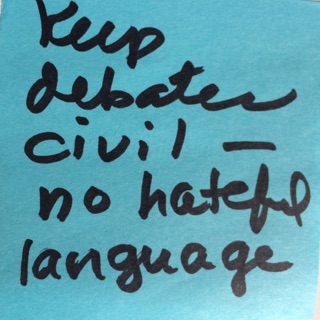 Keep
debates
civil —
no hateful
language